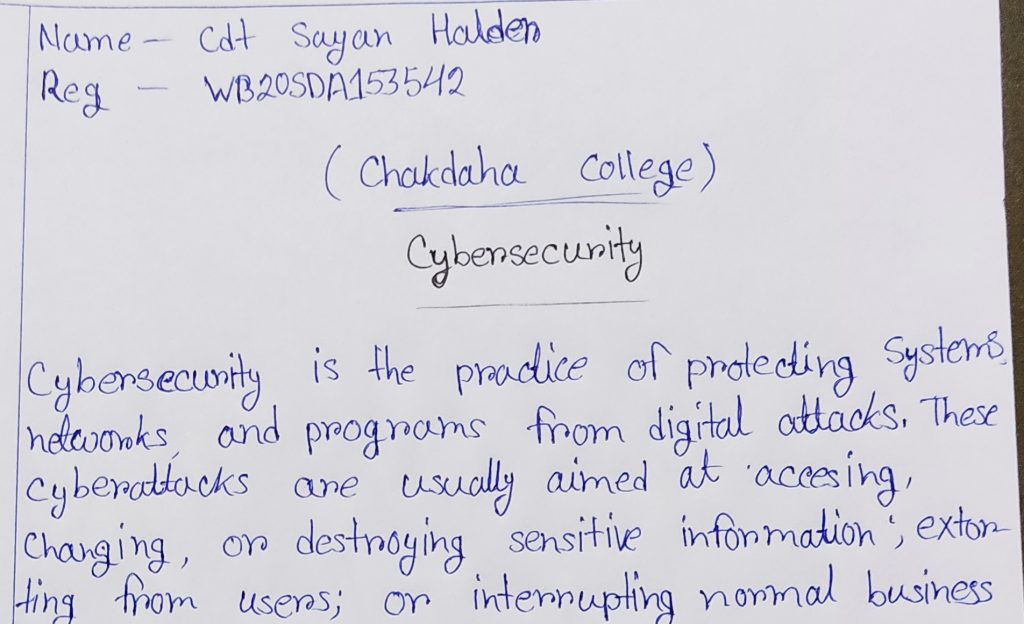 Name - Cdt Sayan Halder
Reg - WB20SDA153542
(Chakdaha College)
Cybersecurity
Cybersecurity is the practice of protecting Systems,
networks, and programs from digital attacks. These
cyberattacks are usually aimed at accesing,
Changing, or destroying sensitive information; extor-
ting from users; or interrupting normal business